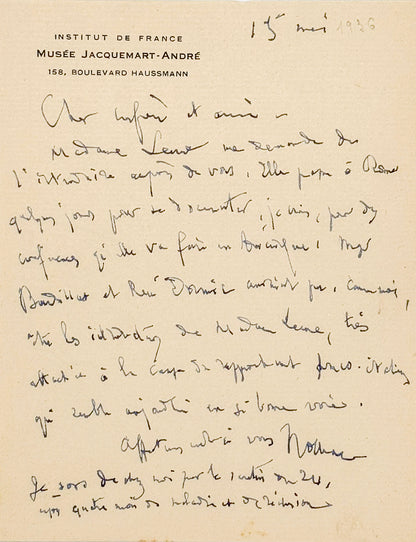 INSTITUT DE FRANCE
MUSÉE JACQUEMART-ANDRÉ
158, BOULEVARD HAUSSMANN
15 mai 1936
Cher confrère et ami –
Madame me demande de
l'introduire auprès de vous. Elle passe à Rome
quelques jours pour se documenter, je crois, pour des
conférences qu'elle va faire en Amérique. Mgr
Baudrillart et René Doumic auraient pu, comme moi,
être les de Madame , très
attachée à la cause du rapprochement franco-italien
qui semble aujourd'hui en si bonne voie.
Affectueusement à vous Nolhac
Je sors de chez moi pour le
après quatre mois de maladie et de réclusion